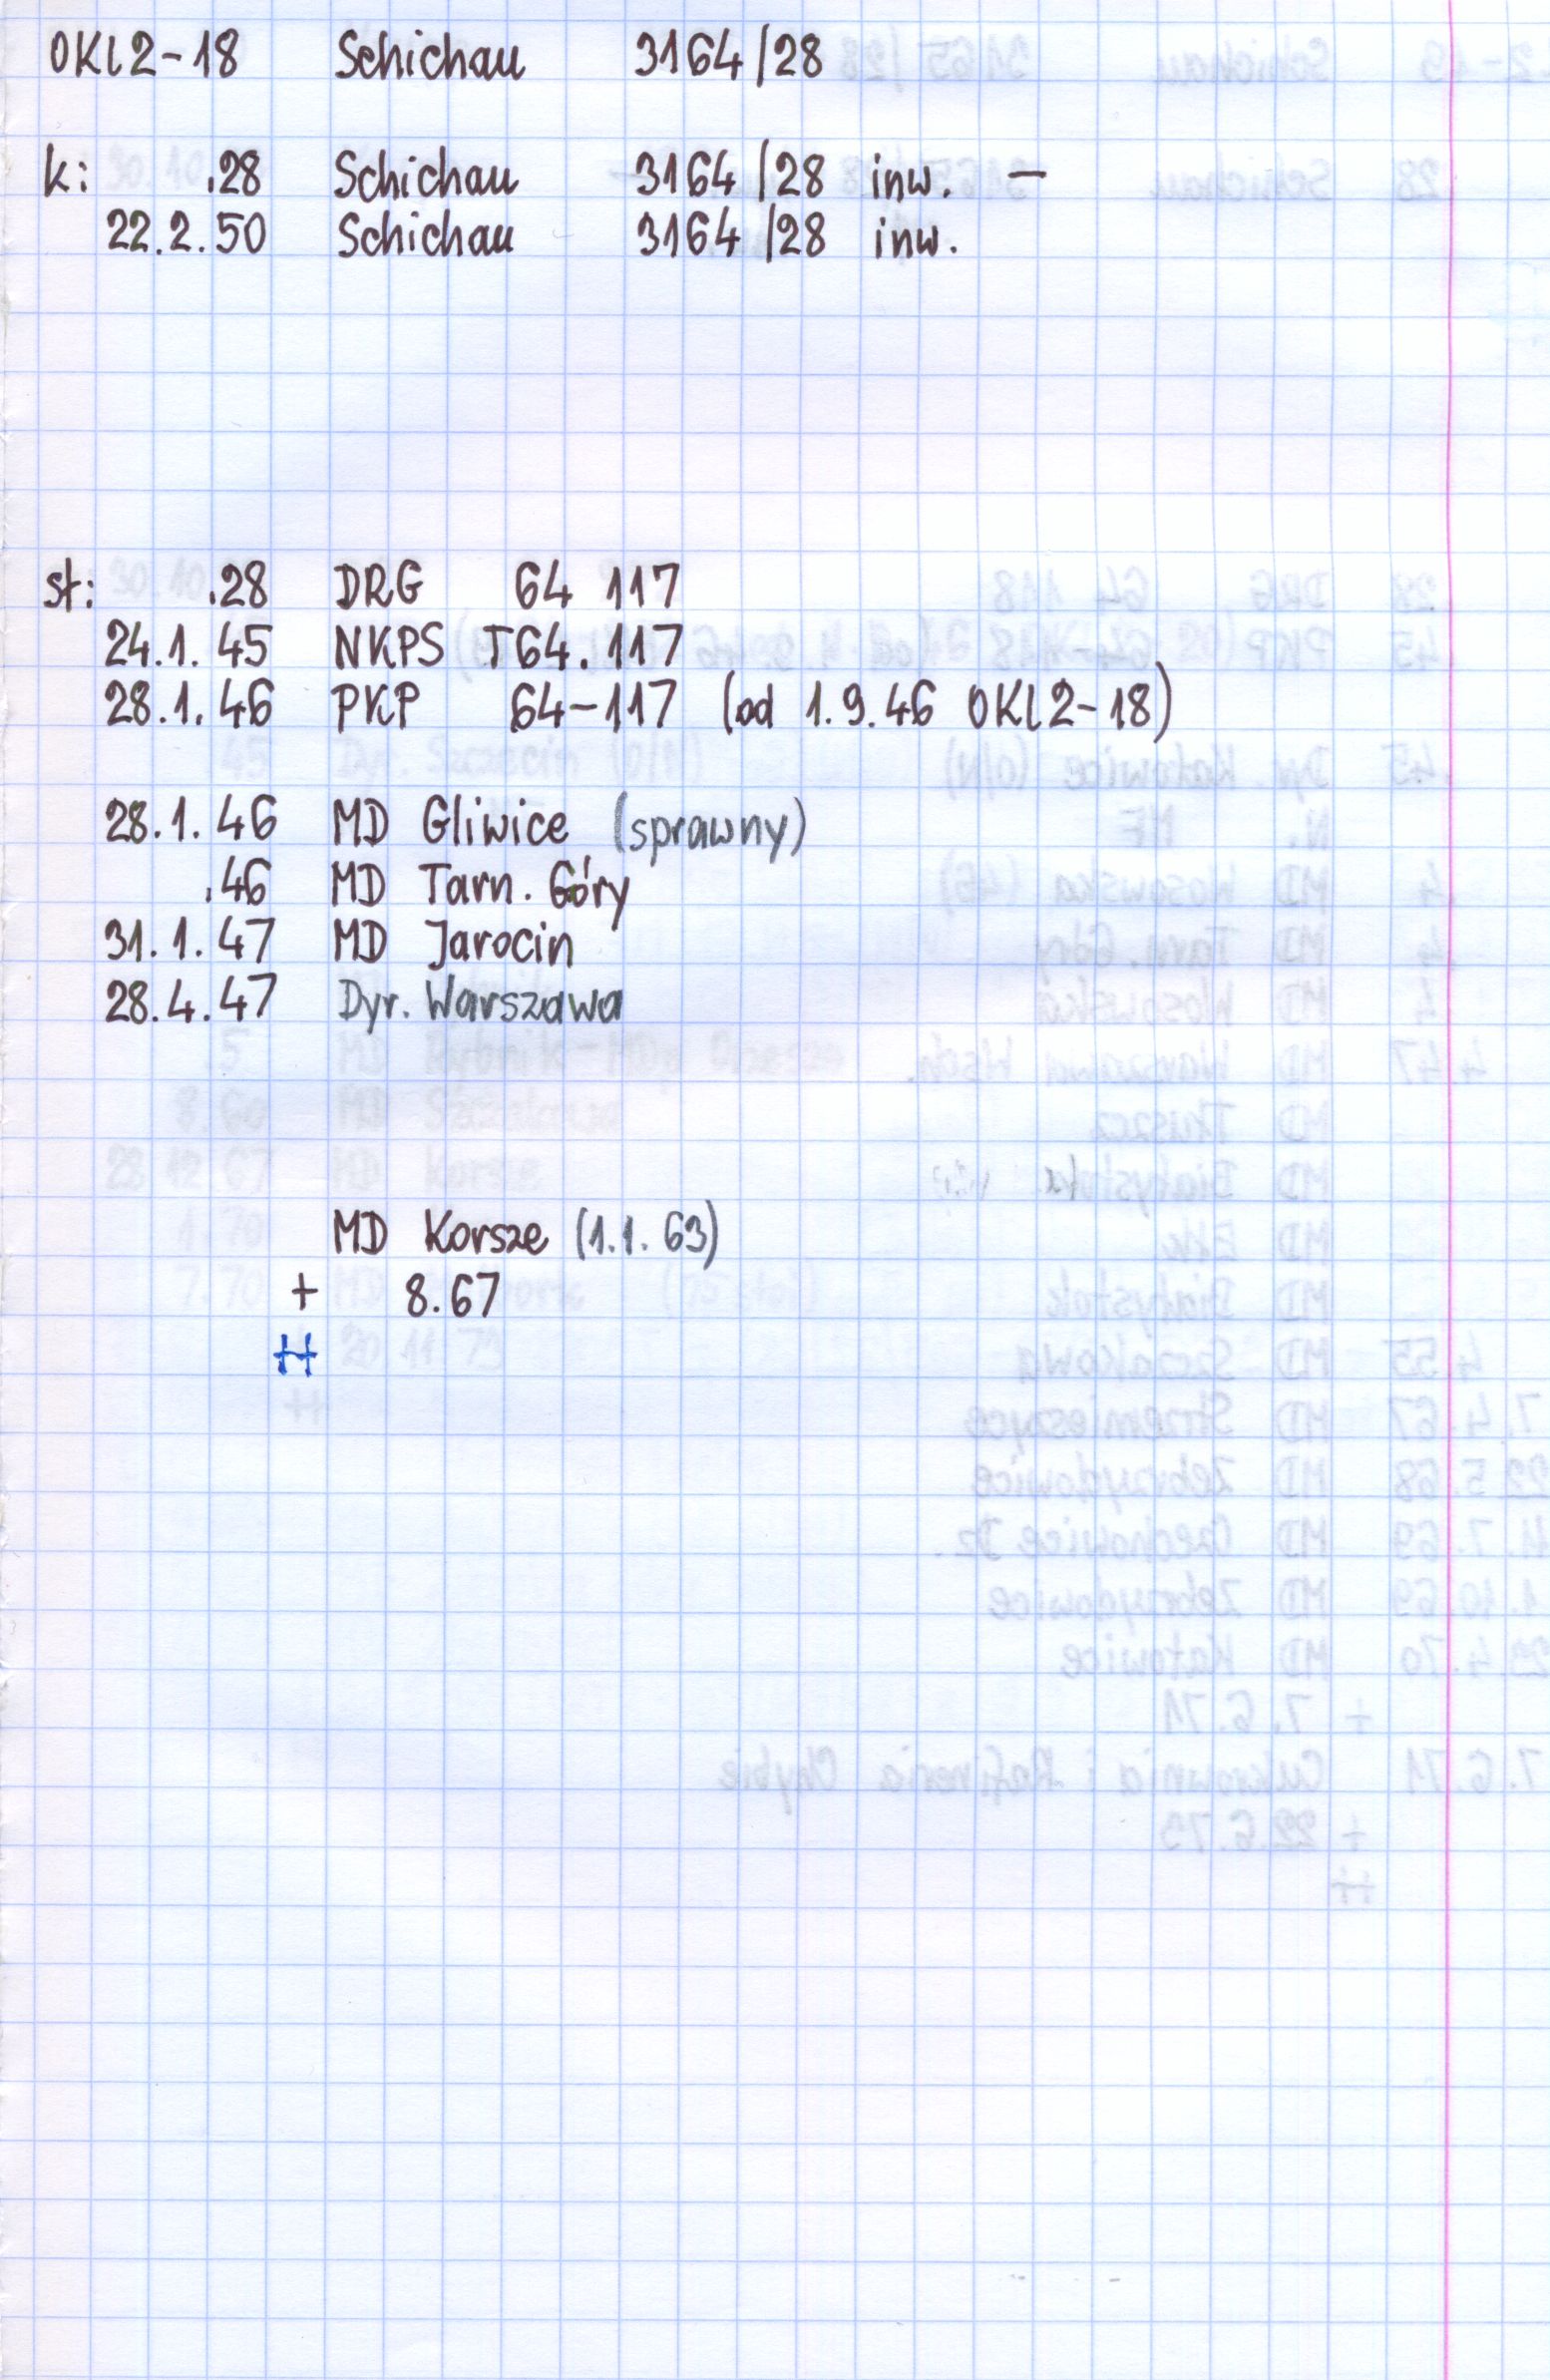 OKl2-18 Schichau 3164/28
k: .28 Schichau 3164/28 inw. —
22.2.50 Schichau 3164/28 inw.
st: .28 DRG 64 117
24.1.45 NKPS T64.117
28.1.46 PKP 64-117 (od 1.9.46 OKl2-18)
28.1.46 MD Gliwice (sprawny)
.46 MD Tarn. Góry
31.1.47 MD Jarocin
28.4.47 Dyr. Warszawa
MD Korsze (1.1.63)
+ 8.67
++